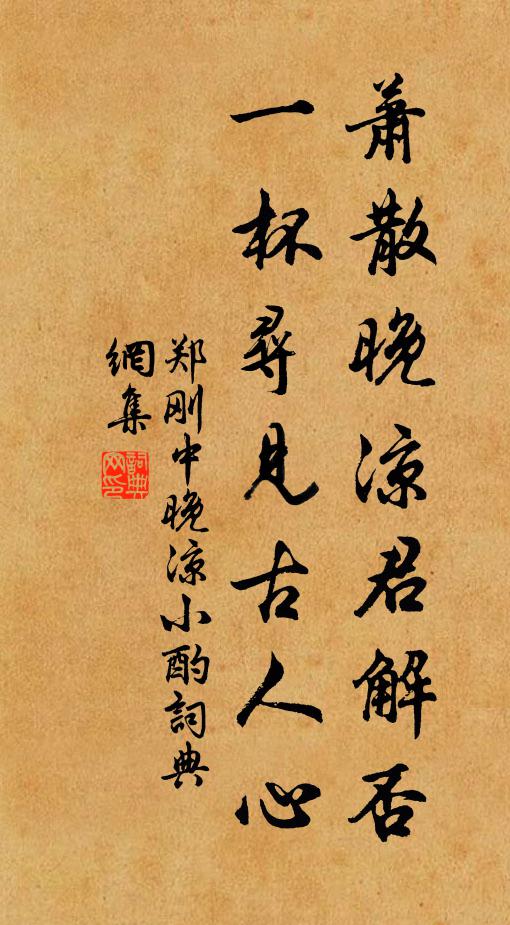 萧散晚凉君解否
一杯寻见古人心
郑刚中晚凉小酌詞典
網集
詞典
网印